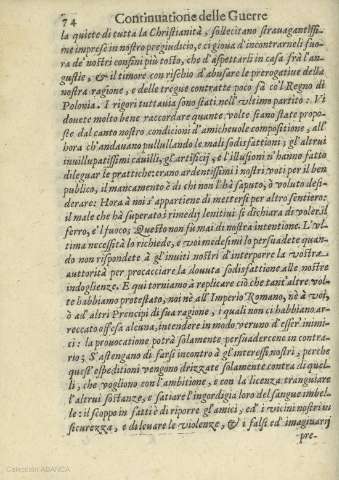 74 Continuatione delle Guerre
la quiete di tutta la Christianità, sollecitano strauagantissi-
me imprese in nostro pregiudicio, ci gioua d'incontrarneli fuo-
ra de' nostri confini più tosto, che d'aspettarli in casa frà l'an-
gustie, & il timore con rischio d'abusare le prerogatiue della
nostra ragione, e delle tregue contratte poco fà co'l Regno di
Polonia. I rigori tuttauia sono stati nell'vltimo partito: Vi
douete molto bene raccordare quante volte siano state propo-
ste dal canto nostro condicioni d'amicheuole compositione, all'
hora ch'andauano pullullando le mali sodisfattioni; gl'altrui
inuilluppatissimi cauilli, gl'artificij, e l'illusioni s'hanno fatto
dileguar le prattiche: erano ardentissimi i nostri voti per il ben
publico, il mancamento è di chi non l'hà saputo, ò voluto desi-
derare: Hora à noi s'appartiene di mettersi per altro sentiero:
il male che hà superato i rimedij lenitiui si dichiara de voler il
ferro, e'l fuoco; Questo non fu mai di nostra intentione. L'vl-
tima necessità lo richiede, e voi medesimi lo persuadete quan-
do non rispondete à gl'inuiti nostri d'interporre la vostra
auttorità per procacciare la douuta sodisfattione alle nostre
indoglienze. E qui torniamo à replicare ciò che tant'altre vol-
te habbiamo protestato, noi nè all'Imperio Romano, nè à voi,
ò ad altri Prencipi di sua ragione, i quali non ci habbiano ar-
reccato offesa alcuna, intendere in modo veruno d'esser inimi-
ci: la prouocatione potrà solamente persuadercene in contra-
rio; S'astengano di farsi incontro à gl'interessi nostri, perche
quest'espeditioni vengono drizzate solamente contra di quel-
li, che vogliono con l'ambitione, e con la licenza tranguiare
l'altrui sostanze, e satiare l'ingordigia loro del sangue imbel-
le: il scoppo in fatti è di riporre gl'amici, ed i vicini nostri in
sicurezza, e di leuare le violenze, & i falsi ed imaginarij
pre-
Colección ABANCA